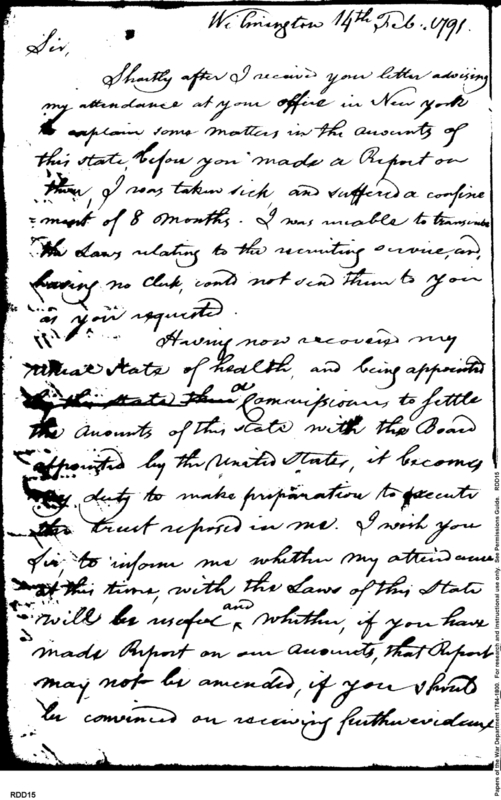 Wilmington 14th Feb. 1791.
Sir,
Shortly after I received your letter advising
my attendance at your office in New York
to explain some matters in the accounts of
this state, before you made a Report on
them, I was taken sick, and suffered a confine
=ment of 8 months. I was unable to transcribe
the Laws relating to the recruiting service, and,
having no Clerk, could not send them to you
as you requested.
Having now recovered my
usual state of health, and being appointed
by this state their a Commissioner to settle
the accounts of this state with the Board
appointed by the United States, it becomes
my duty to make preparation to execute
the trust reposed in me. I wish you
Sir, to inform me whether my attendance
at this time, with the Laws of this State
will be useful and whether, if you have
made Report on our accounts, that Report
may not be amended, if you should
be convinced on receiving further evidence
RDD15
Papers of the War Department 1784-1800. For research and instructional use only. See Permissions Guide. RDD15